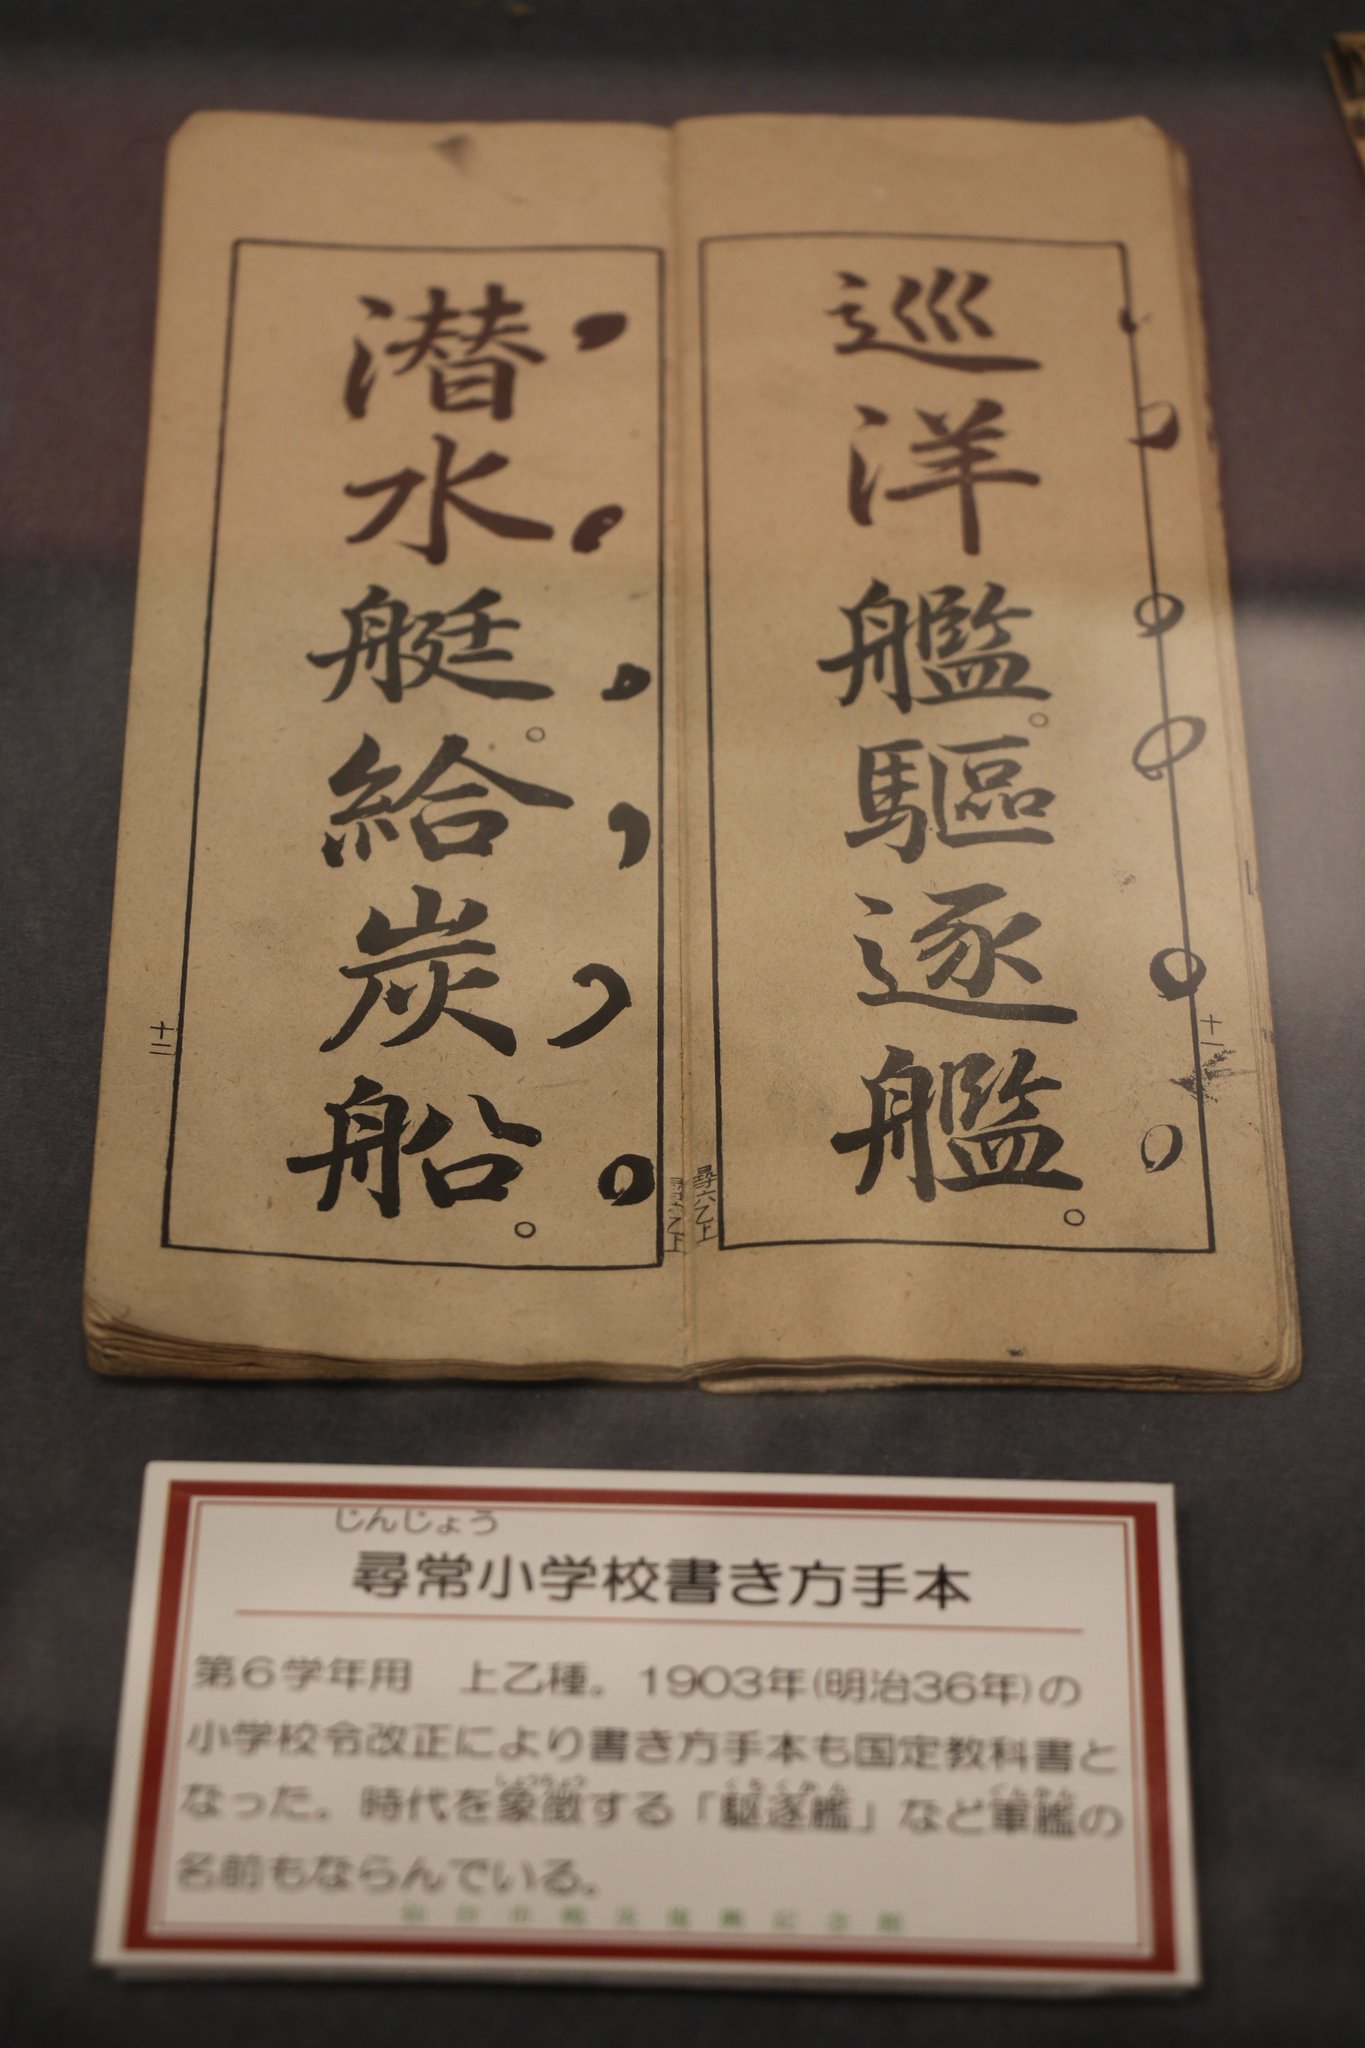 巡洋艦。驅逐艦。
十一
尋六乙上
潜水艇。給炭船。
十二
尋六乙上
じんじょう
尋常小学校書き方手本
第6学年用　上乙種。1903年(明治36年)の
小学校令改正により書き方手本も国定教科書と
しょうちょう くちくかん ぐんかん
なった。時代を象徴する「駆逐艦」など軍艦の
名前もならんでいる。
仙台市戦災復興記念館